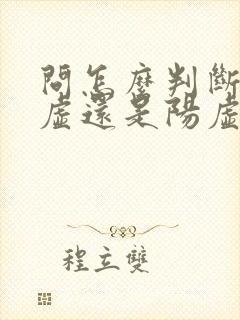 問怎麼判斷
虛還是陽虛
程立雙